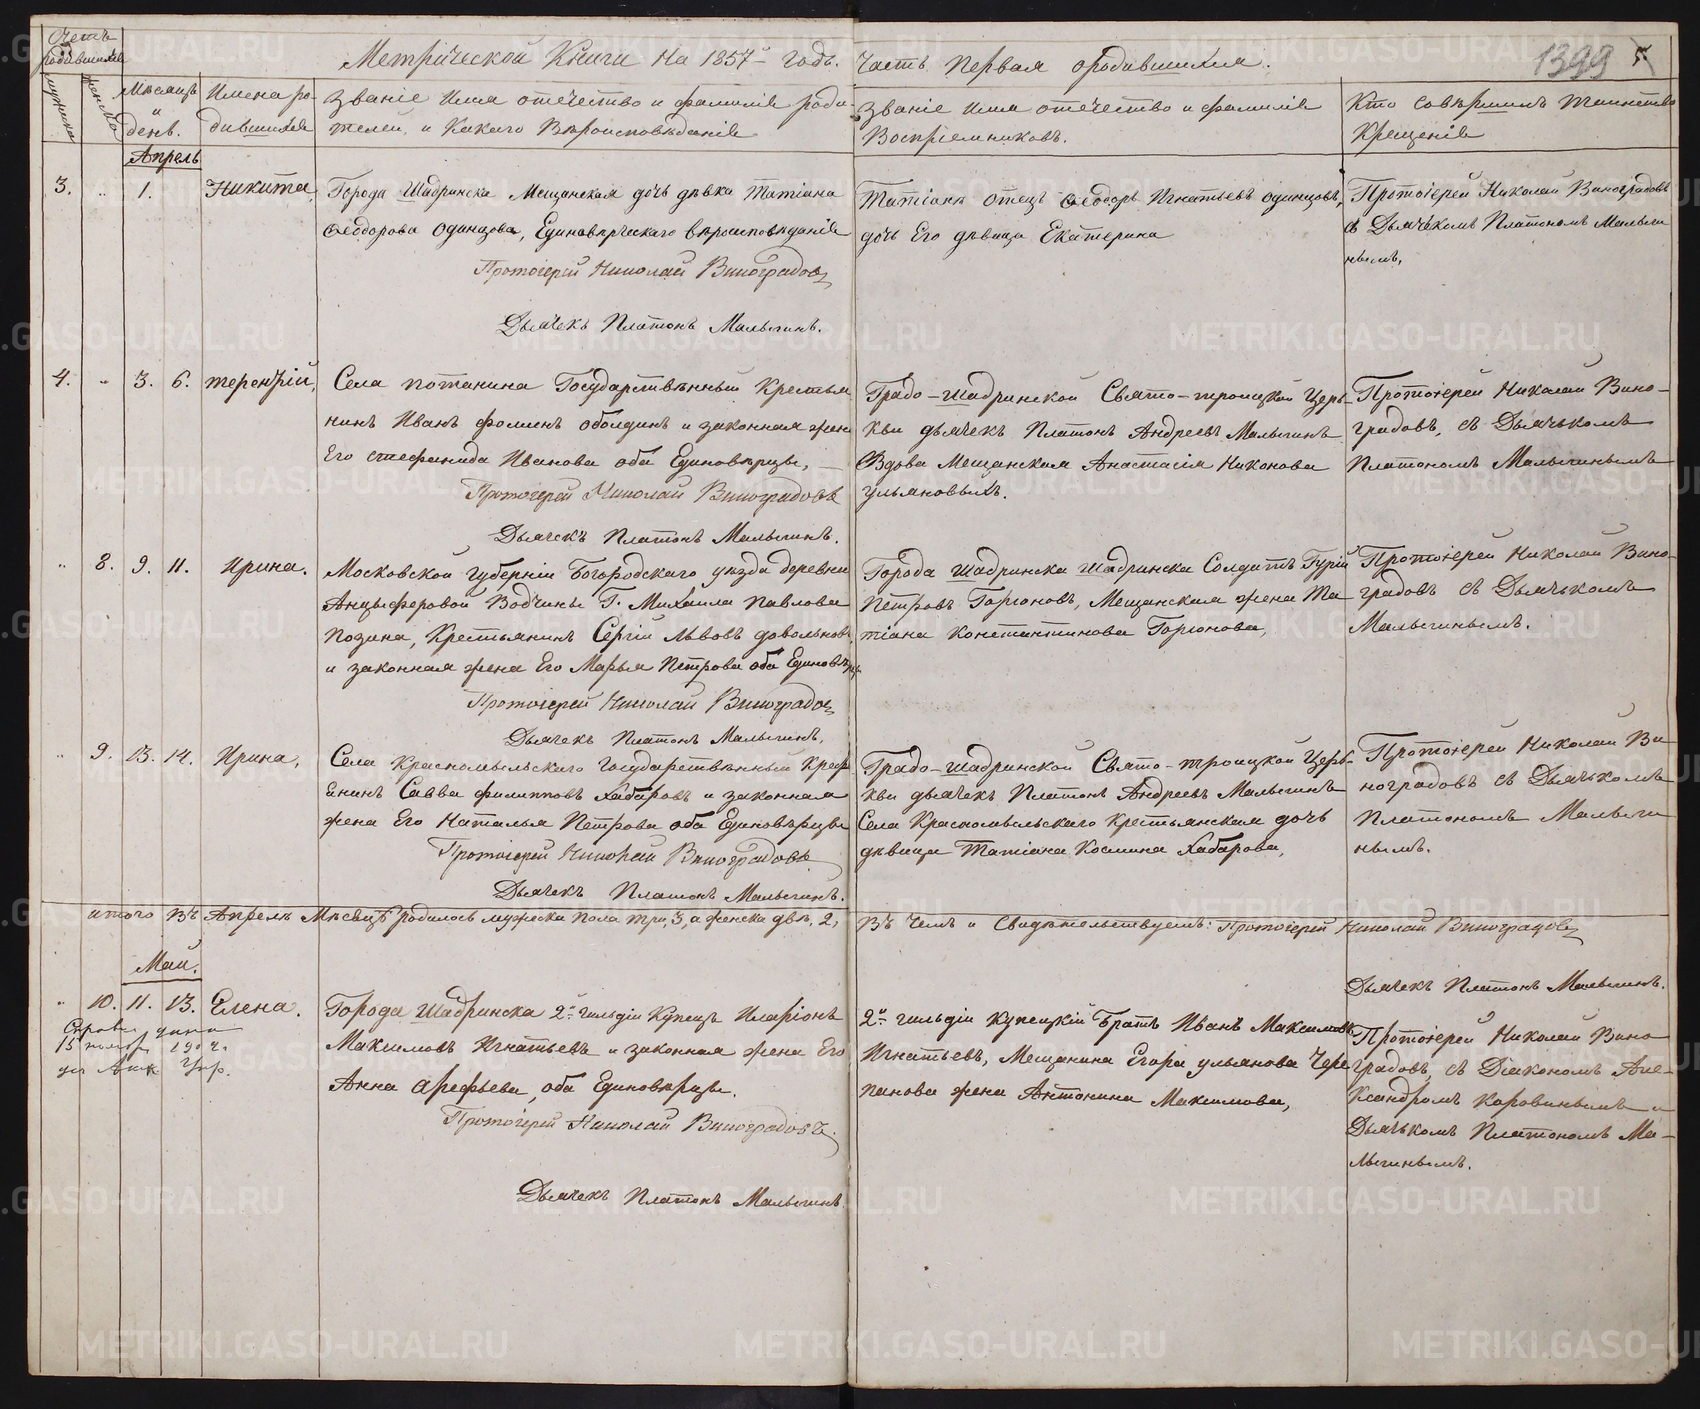 Метрической Книги На 1857й годъ. Часть Первая о родившихся.
1399
Счетъ родившихся
мужеска
женска
Месяцъ и день.
Имена родившихся
Званіе Имя отечество и фамилія роди-
телей, и Какаго Вѣроисповѣданія
Званіе Имя отечество и фамилія
Воспріемниковъ.
Кто совершилъ таинство
Крещенія
Апрель
3. „ 1. Никита,
Города Шадринска Мещанская дочь дѣвка Татіана
Ѳеодорова Одинцова, Единовѣрческаго вѣроисповѣданія
Протоіерей Николай Виноградовъ
Дьячекъ Платонъ Малыгинъ.
Татіаны отецъ Ѳеодоръ Игнатьевъ Одинцовъ,
дочь Его дѣвица Екатерина
Протоіерей Николай Виноградовъ
съ Дьячькомъ Платономъ Малыги
нымъ.
4. „ 3. 6. терентій,
Села потанина Государственный Крестья
нинъ Иванъ фоминъ оболдинъ и законная жена
Его стефанида Иванова оба Единоверцы,
Протоіерей Николай Виноградовъ
Дьячекъ Платонъ Малыгинъ.
Градо-Шадринской Свято-троицкой Церь-
кви дьячекъ Платонъ Андреевъ Малыгинъ
Вдова Мещанская Анастасія Никонова
ульяновыхъ.
Протоіерей Николай Вино-
градовъ, съ Дьячькомъ
Платономъ Малыгинымъ
„ 8. 9. 11. Ирина.
Московской Губерніи Богородскаго уѣзда деревни
Анцыферовой Водчины Г. Михаила Павлова
Позина, Крестьянинъ Сергій Львовъ довольновъ
и законная жена Его Марья Петрова оба Единовѣрцы
Протоіерей Николай Виноградовъ
Дьячекъ Платонъ Малыгинъ.
Города Шадринска Шадринска Солдатъ Гурій
Петровъ Горюновъ, Мещанская жена Та
тіана Константинова Горюнова,
Протоіерей Николай Вино-
градовъ съ Дьячькомъ
Малыгинымъ.
„ 9. 13. 14. Ирина,
Села Красномыльскаго Государственный Крест
янинъ Савва филипповъ Хабаровъ и законная
жена Его Наталья Петрова оба Единовѣрцы
Протоіерей Николай Виноградовъ
Дьячекъ Платонъ Малыгинъ.
Градо-Шадринской Свято-троицкой Церь-
кви дьячекъ Платонъ Андреевъ Малыгинъ
Села Красномыльскаго крестьянская дочь
дѣвица Татіана Космина Хабарова,
Протоіерей Николай Ви
ноградовъ съ Дьячькомъ
Платономъ Малыги
нымъ.
итого Въ Апреле Месяце родилось мужеска пола три, 3, а женска две, 2,
Въ Чемъ и Свидѣтельствуемъ: Протоіерей Николай Виноградовъ
Дьячекъ Платонъ Малыгинъ.
Маи.
„ 10. 11. 13. Елена.
Города Шадринска 2й гильдіи Купецъ Иларіонъ
Максимовъ Игнатьевъ и законная жена Его
Анна Арефьева, оба Единовѣрцы.
Протоіерей Николай Виноградовъ.
Дьячекъ Платонъ Малыгинъ
2й гильдіи Купецкій Братъ Иванъ Максимовъ
Игнатьевъ, Мещанина Егора ульянова Чере
панова жена Антонина Максимова,
Протоіерей Николай Вино
градовъ, съ Діакономъ Але-
ксандромъ Коровинымъ и
Дьячькомъ Платономъ Ма-
лыгинымъ.
METRIKI.GASO-URAL.RU